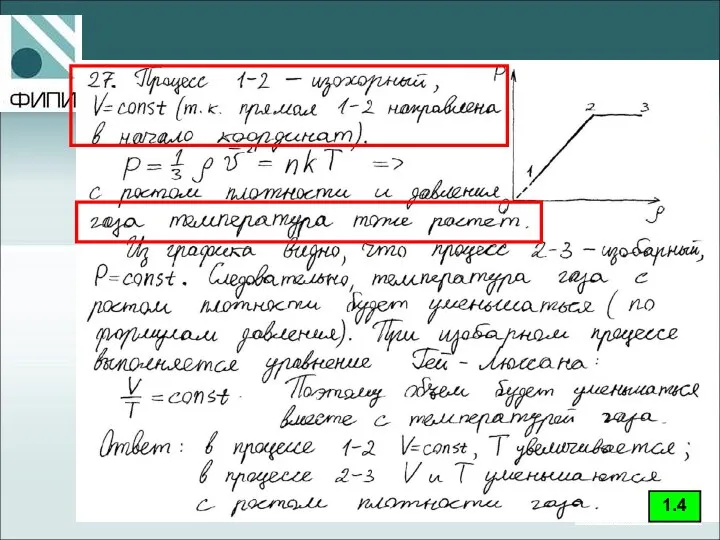 ФИПИ
27. Процесс 1-2 – изохорный,
V=const (т.к. прямая 1-2 направлена
в начало координат).
p = 1/3 ρ v̄² = nkT =>
с ростом плотности и давления
газа температура тоже растет.
Из графика видно, что процесс 2-3 – изобарный,
P=const. Следовательно, температура газа с
ростом плотности будет уменьшаться (по
формулам давления). При изобарном процессе
выполняется уравнение Гей-Люссака:
V/T = const. Поэтому объем будет уменьшаться
вместе с температурой газа.
Ответ: в процессе 1-2 V=const, T увеличивается;
в процессе 2-3 V и T уменьшаются
с ростом плотности газа.
P
2 3
1
0 ρ
1.4